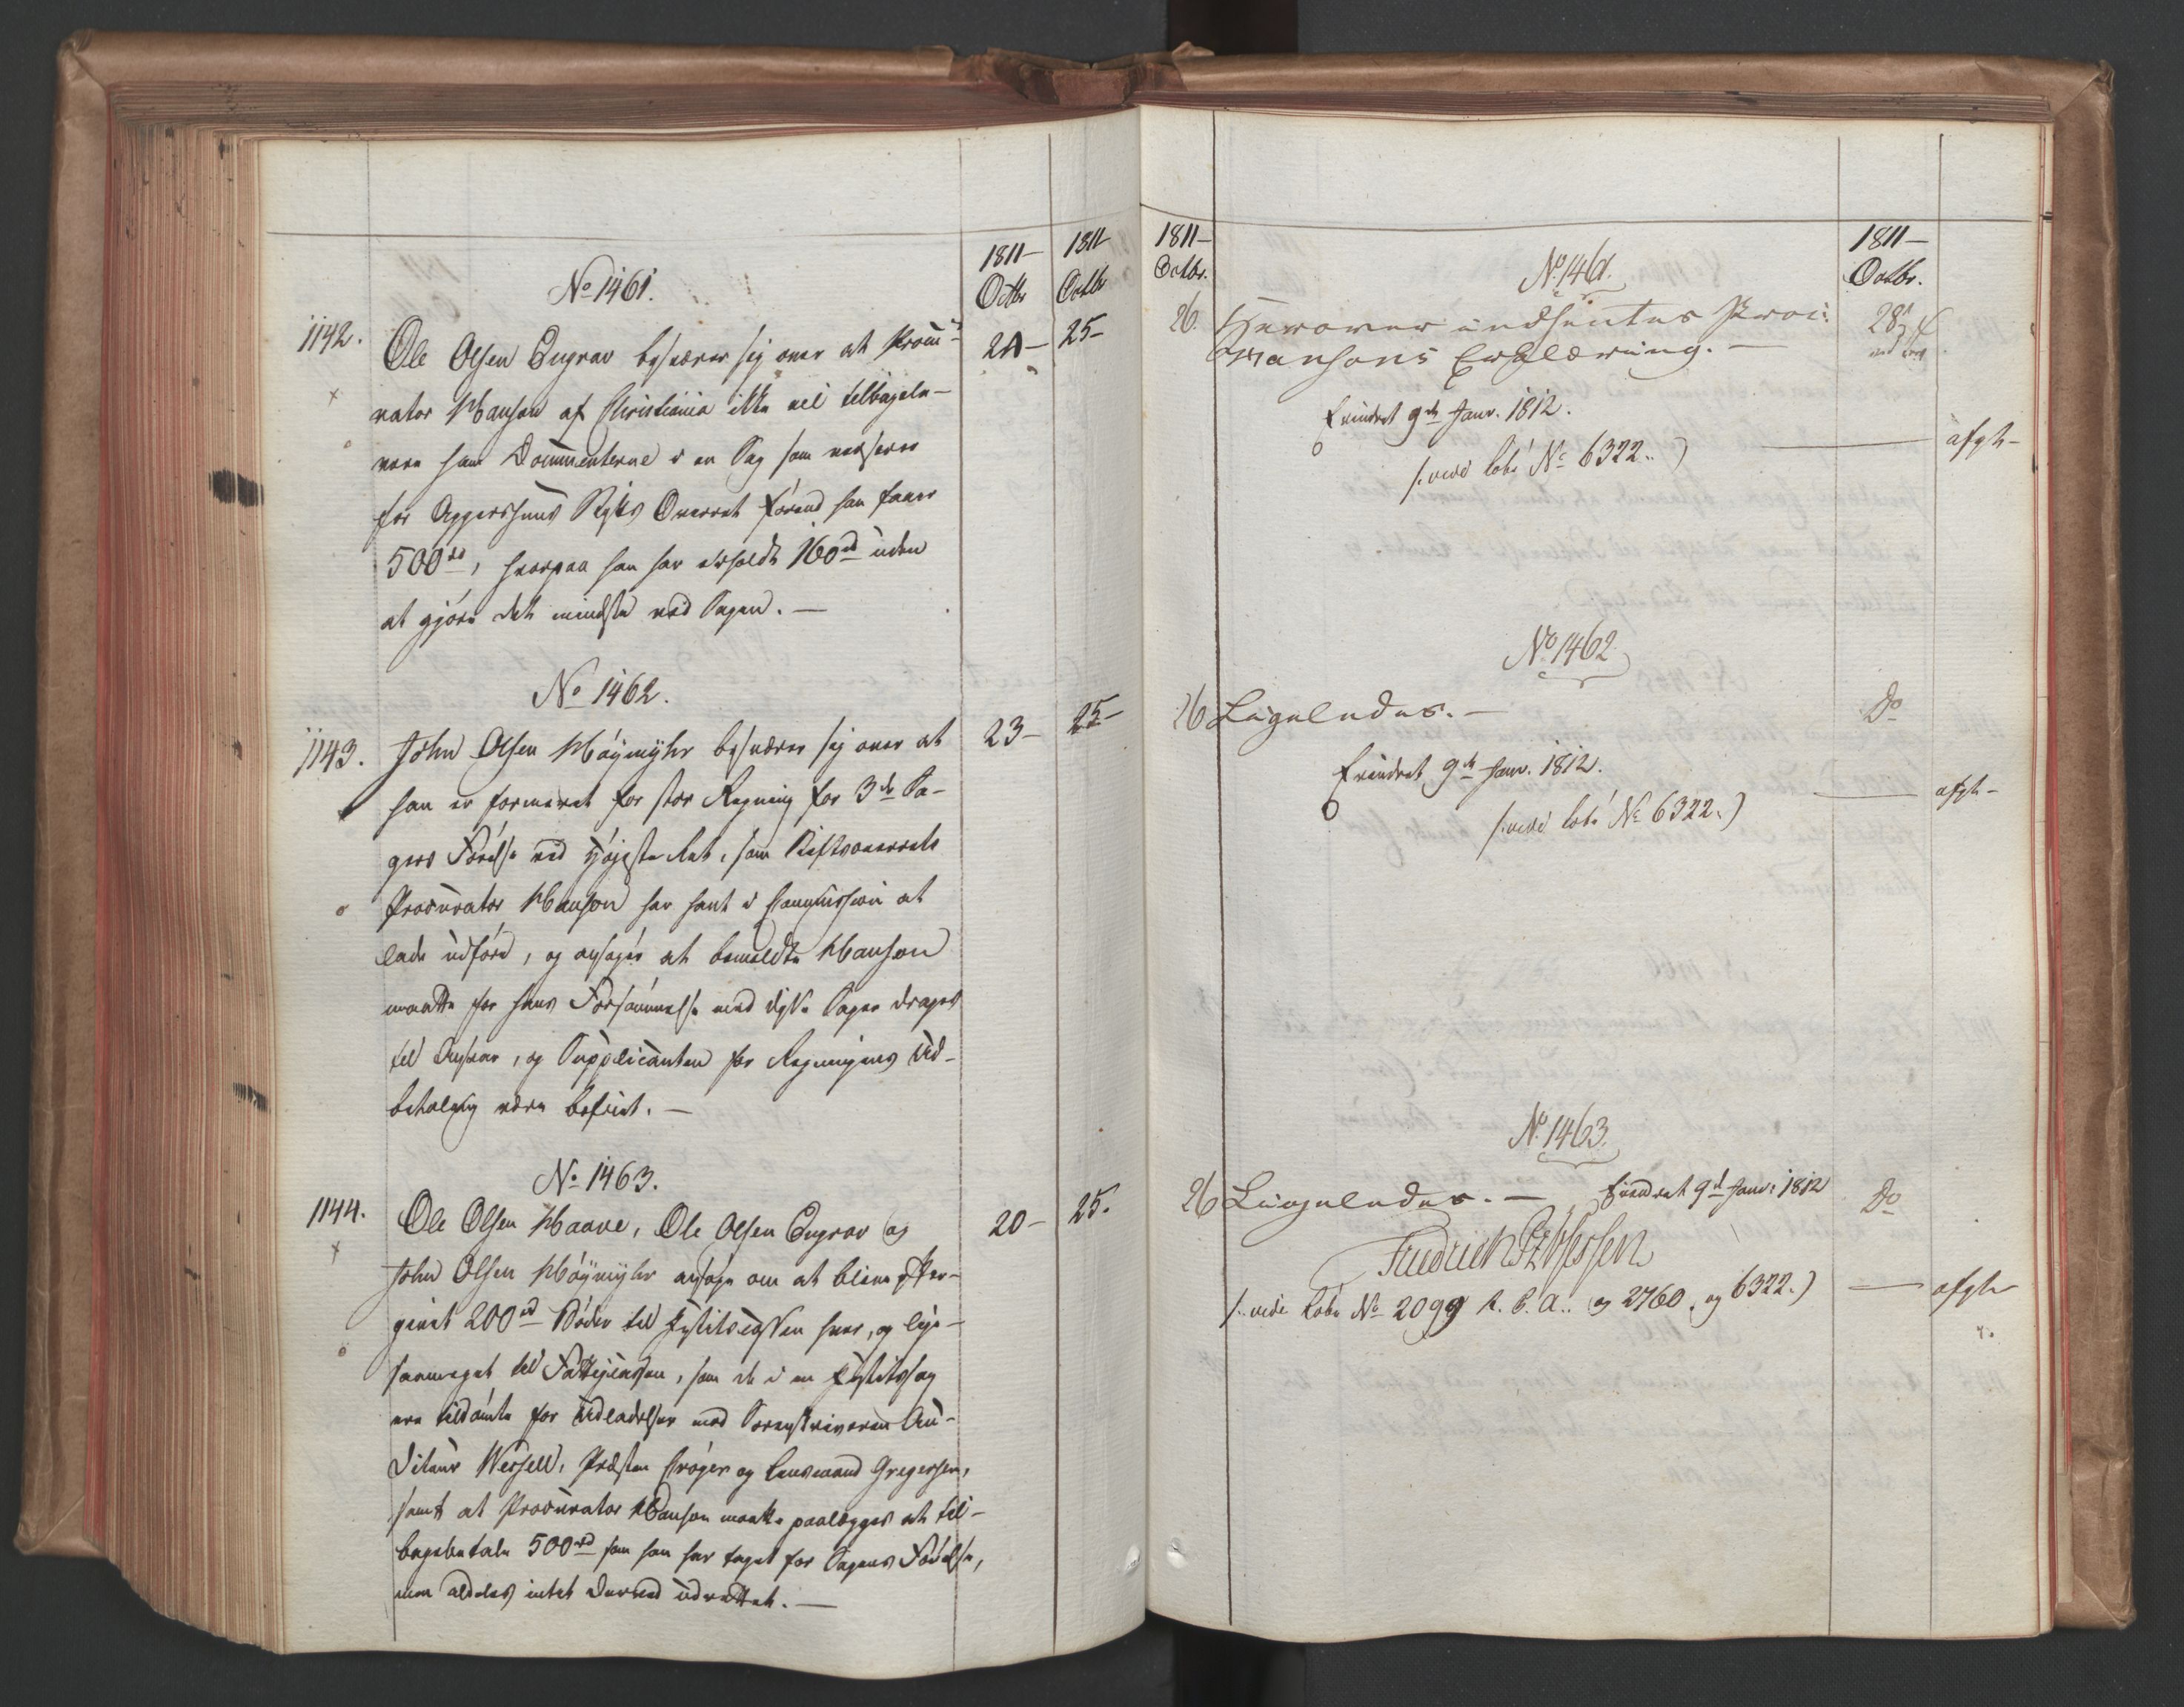 1811–
Octbr
1811
Octbr
No 1461.
1142.
Ole Olsen Engrav besværer sig over at Procu-
24–
25–
rator Manson af Christiania ikke vil tilbagele-
vere ham Documenterne i en Sag som verserer
for Aggershuus Stifts Overret førend han faaer
500 rd, hvorpaa han har erholdt 160 rd uden
at gjøre det mindste ved Sagen. —
No 1462.
1143.
John Olsen Høymyhr besværer sig over at
23–
25–
han er formeent for stor Regning for 3de Sa-
gers Førelse ved Højeste Ret, som Stiftsoverrets
Procurator Manson har havt i Commission at
lade udføre, og ansøger at bemeldte Manson
maatte for hans Forsømmelse med disse Sager drages
til Ansvar, og Supplicanten for Regningens Ud-
betaling være befriet. —
No 1463.
1144.
Ole Olsen Haave, Ole Olsen Engrav og
20–
25.
John Olsen Høymyhr ansøge om at blive efter-
givet 200 rd Bøder til Justitscassen hver, og lige-
saameget til Fattigcassen, som de i en Justitssag
ere tildømte for Udladelser mod Sorenskriveren Au-
diteur Wessell, Præsten Crøger og Lensmand Gregersen,
samt at Procurator Manson maatte paalægges at til-
bagebetale 500 rd som han har taget for Sagens Førelse,
men aldeles intet derved udrettet. —
1811–
Octbr.
1811–
Octbr.
No 1461.
26.
Herover indhentes Proc:
28
Mansons Erklæring. —
Erindret 9de Janr. 1812.
(: vide Lobr No 6322 :)
afgh–
No 1462
26
Ligeledes. —
Do
Erindret 9de Janr. 1812.
(: vide Lobr No 6322 :)
afgh–
No 1463.
26
Ligeledes. —
Erindret 9de Janr: 1812
Do
Friedrich
(: vide Lobr No 2099 A. C. A.. og 2760, og 6322.)
afgh